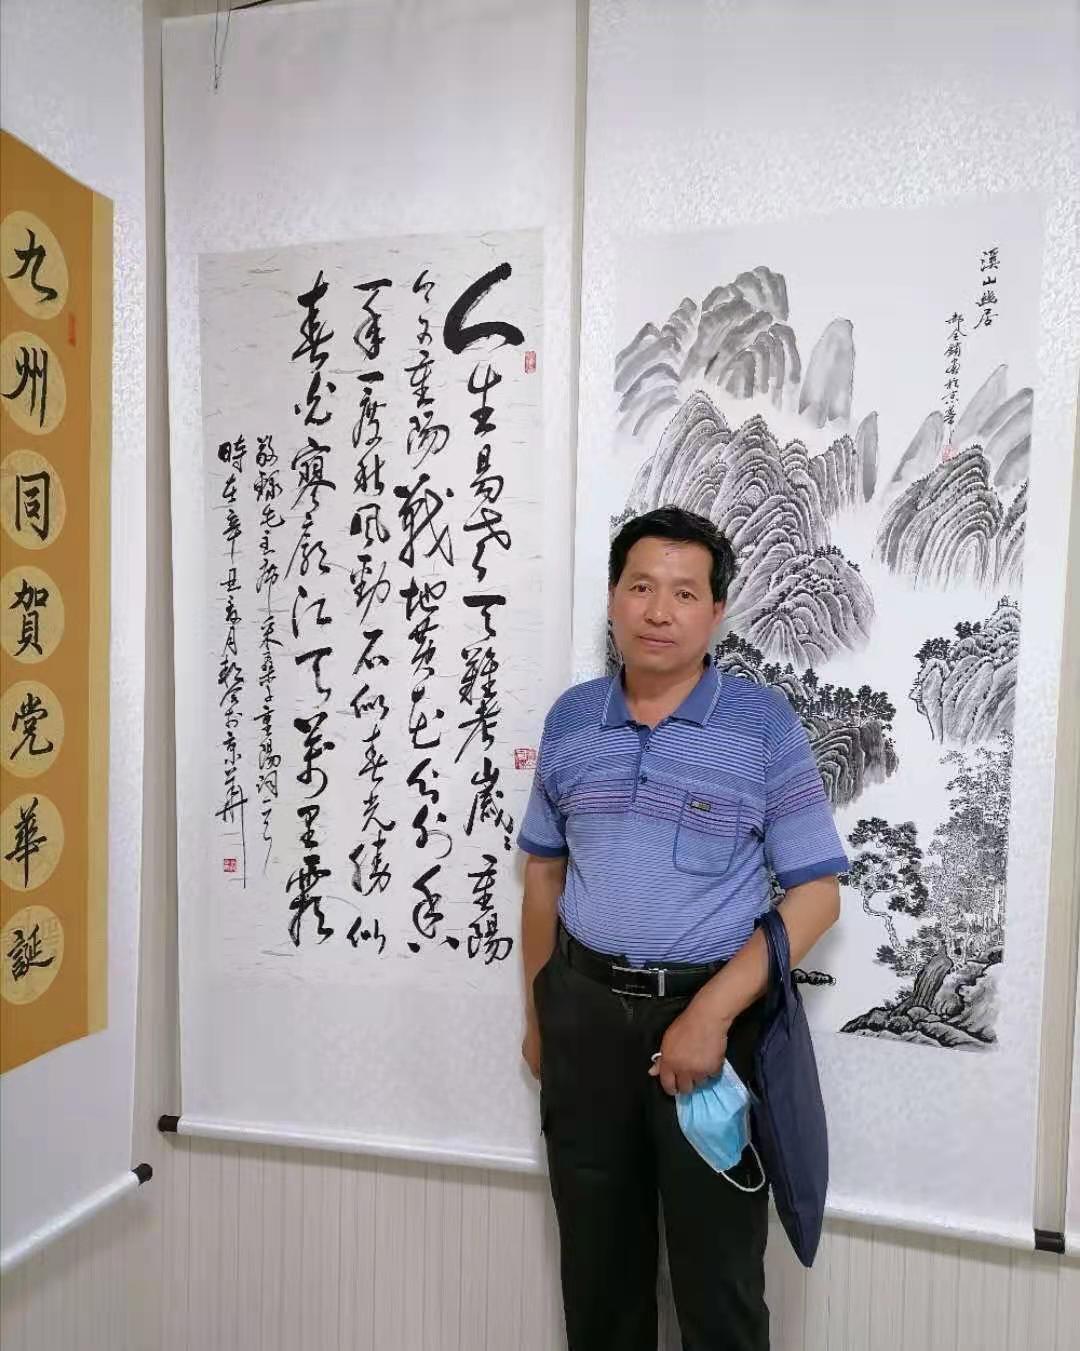 溪山幽居
郝全鎖畫於京華
人生易老天難考歲〻重陽
今又重陽戰地黄花分外香
一年一度秋風勁不似春光勝似
春光寥廓江天萬里霜
敬録毛主席采桑子重陽詞一首
時在辛丑夏月於京華
九州同賀党華誕